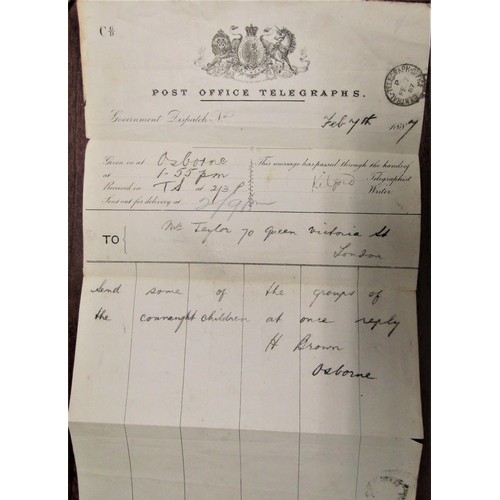 POST OFFICE TELEGRAPHS.
Government Despatch No
Feb 7th 1887
Given in at Osborne
at 1-55 pm
Received in TS at 2/3 p
Sent out for delivery at 2/9 pm
This message has passed through the hands of
Telegraphist
Writer
TO { Mr Taylor 70 Queen Victoria St
London
Send some of the groups of
the connaught children at once reply
H Brown
Osborne
CENTRAL TELEGRAPH OFFICE